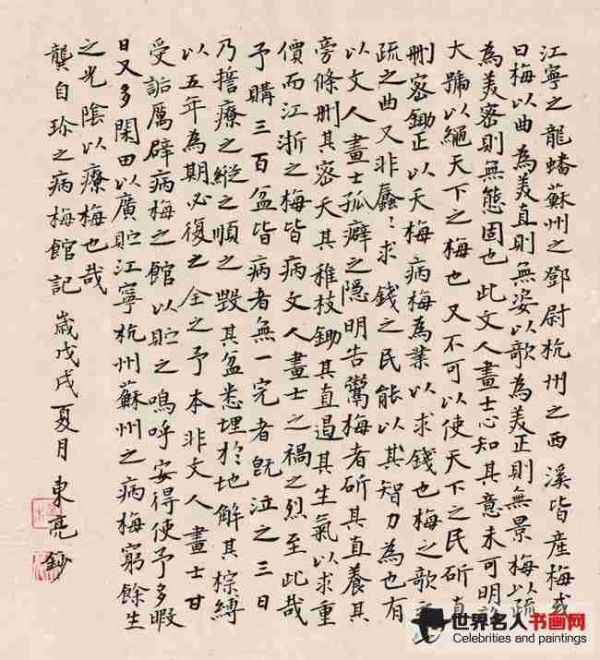 江寧之龍蟠蘇州之鄧尉杭州之西溪皆產梅或
曰梅以曲為美直則無姿以歌為美正則無景梅以疏
為美密則無態固也此文人畫士心知其意未可明詔
大號以繩天下之梅也又不可以使天下之民斫直
刪密鋤正以夭梅病梅為業以求錢也梅之歌之
疏之曲又非蠢〻求錢之民能以其智力為也有
以文人畫士孤癖之隱明告鬻梅者斫其直養其
旁條刪其密夭其稚枝鋤其直遏其生氣以求重
價而江浙之梅皆病文人畫士之禍之烈至此哉
予購三百盆皆病者無一完者既泣之三日
乃誓療之縱之順之毀其盆悉埋於地解其棕縛
以五年為期必復之全之予本非文人畫士甘
受詬厲辟病梅之館以貯之嗚呼安得使予多暇
日又多閑田以廣貯江寧杭州蘇州之病梅窮餘生
之光陰以療梅也哉
龔自珍之病梅館記 歲戊戌夏月東亮鈔
世界名人书画网
Celebrities and paintings